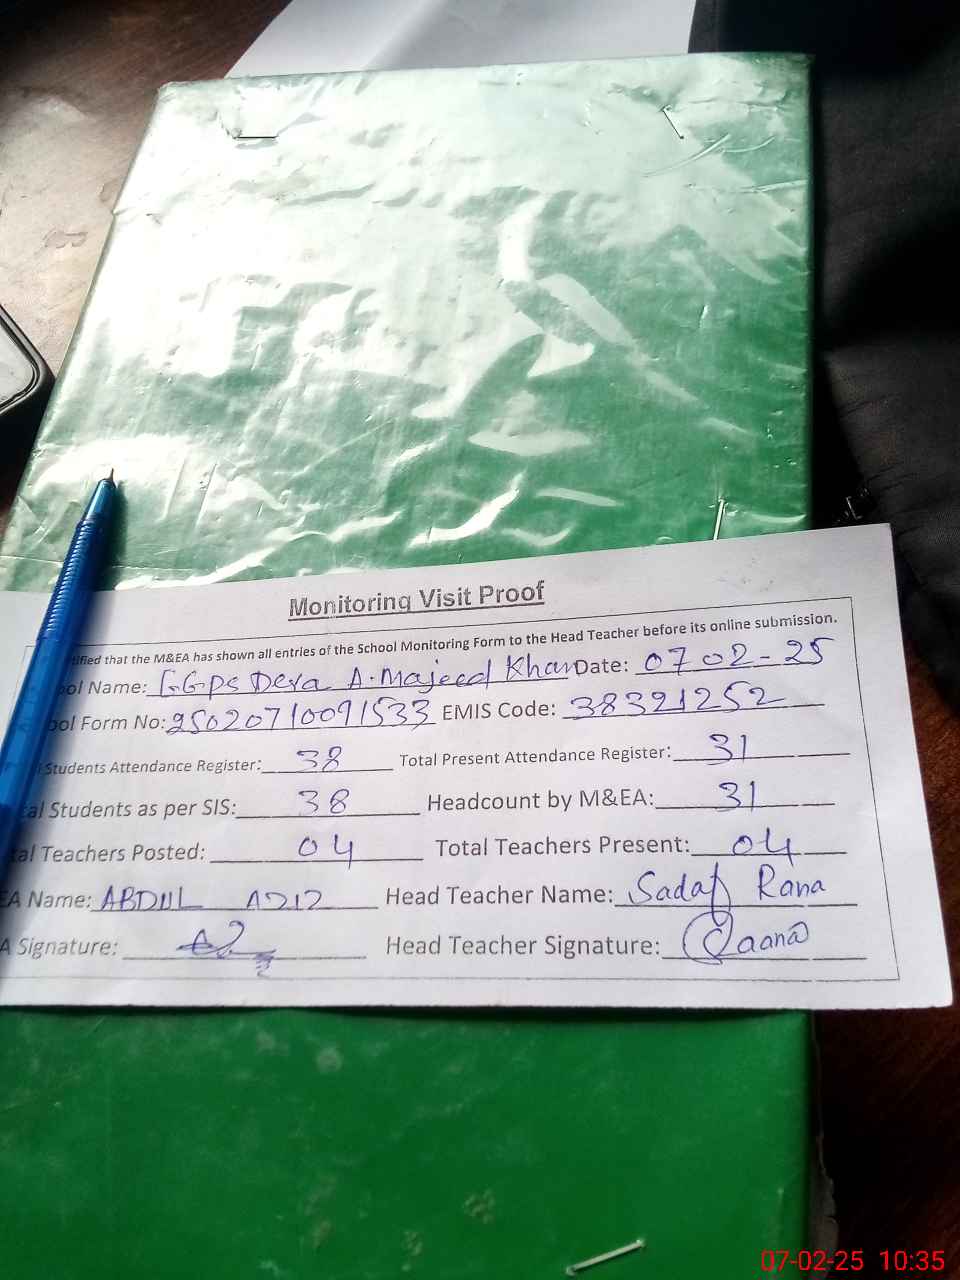 Monitoring Visit Proof
tified that the M&EA has shown all entries of the School Monitoring Form to the Head Teacher before its online submission.
ool Name: GGPS Dera A.Majeed Khan Date: 07 02-25
ool Form No: 25020710091533 EMIS Code: 38321252
Students Attendance Register: 38 Total Present Attendance Register: 31
al Students as per SIS: 38 Headcount by M&EA: 31
tal Teachers Posted: 04 Total Teachers Present: 04
EA Name: ABDUL AZIZ Head Teacher Name: Sadaf Rana
A Signature: Head Teacher Signature: Raana
07-02-25 10:35